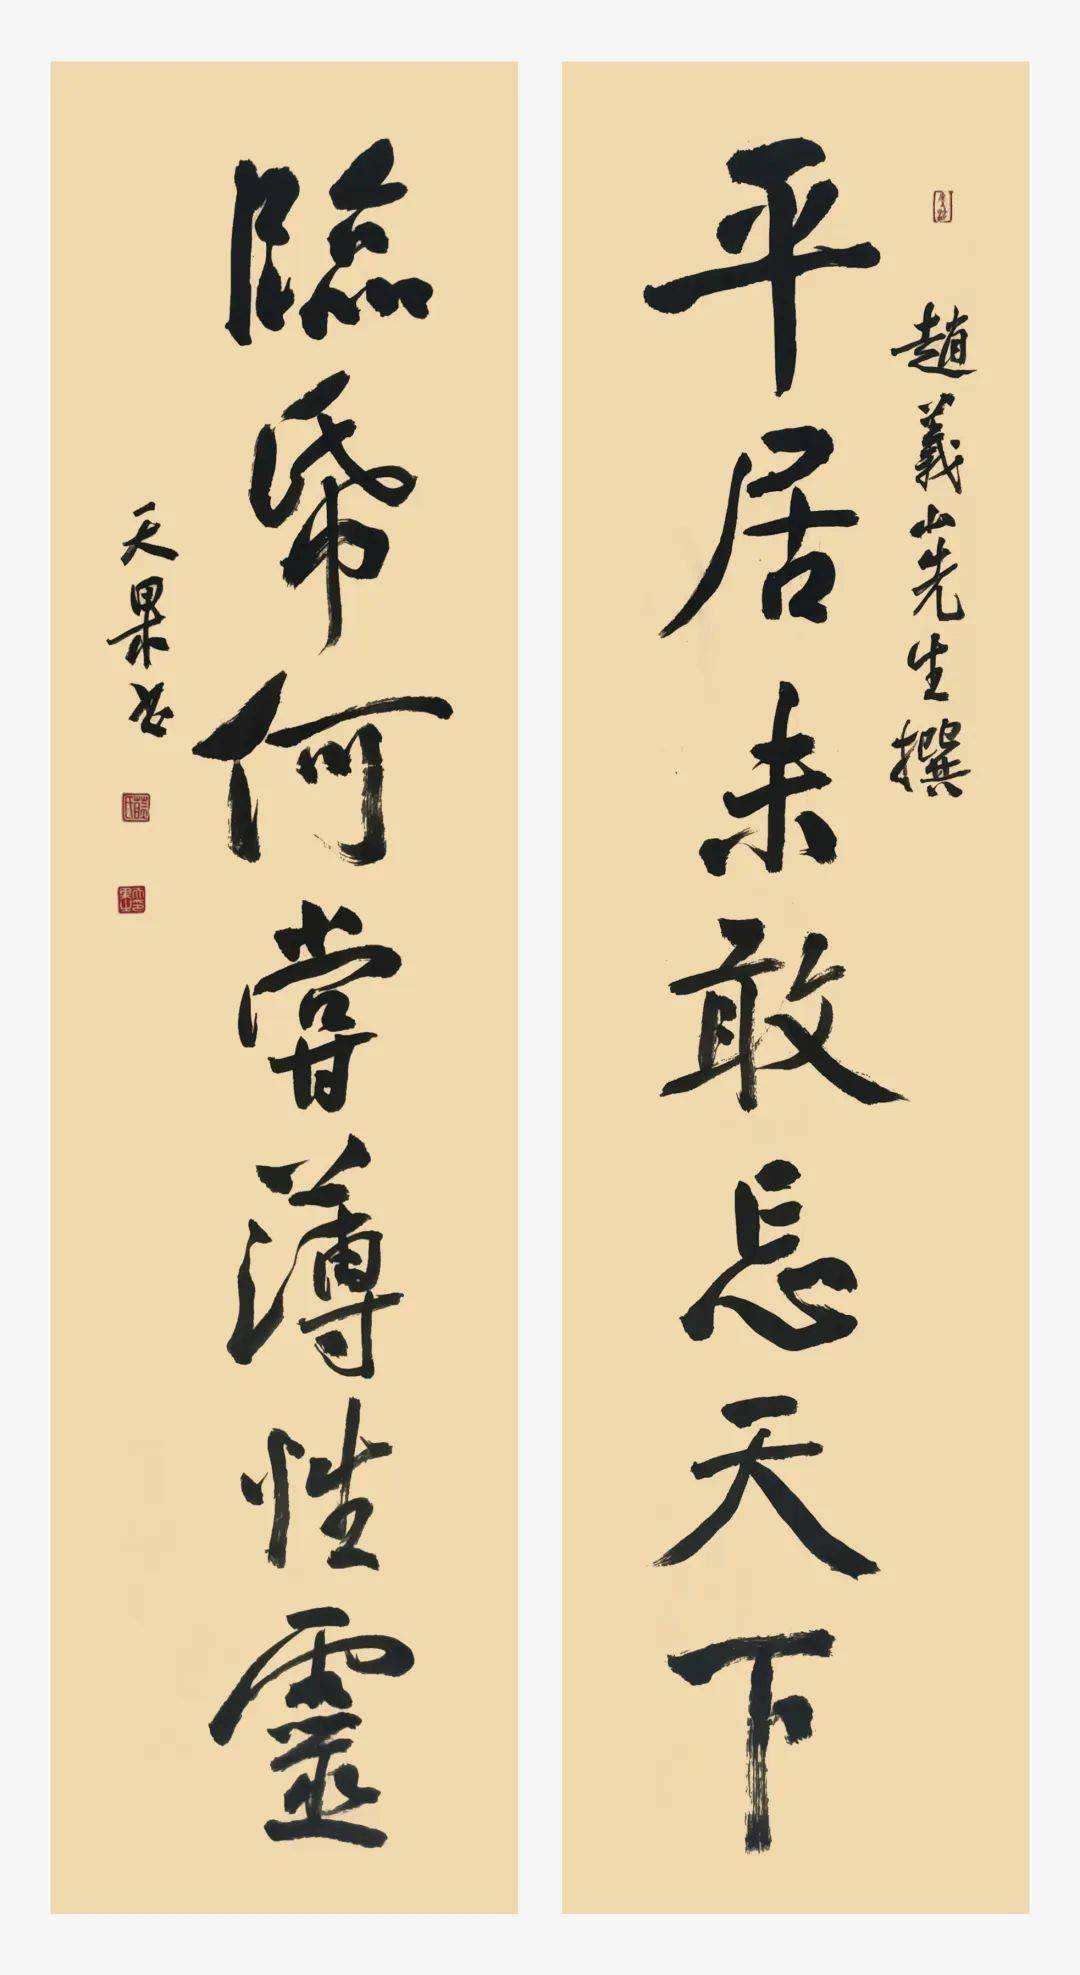 趙義山先生撰
平居未敢忘天下
臨帋何甞薄性靈
天果书